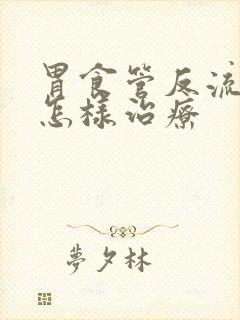 胃食管反流
怎様治療
夢夕林